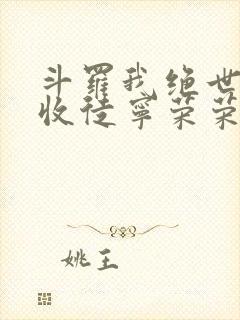 斗罗我绝世
收徒宁荣荣
姚王